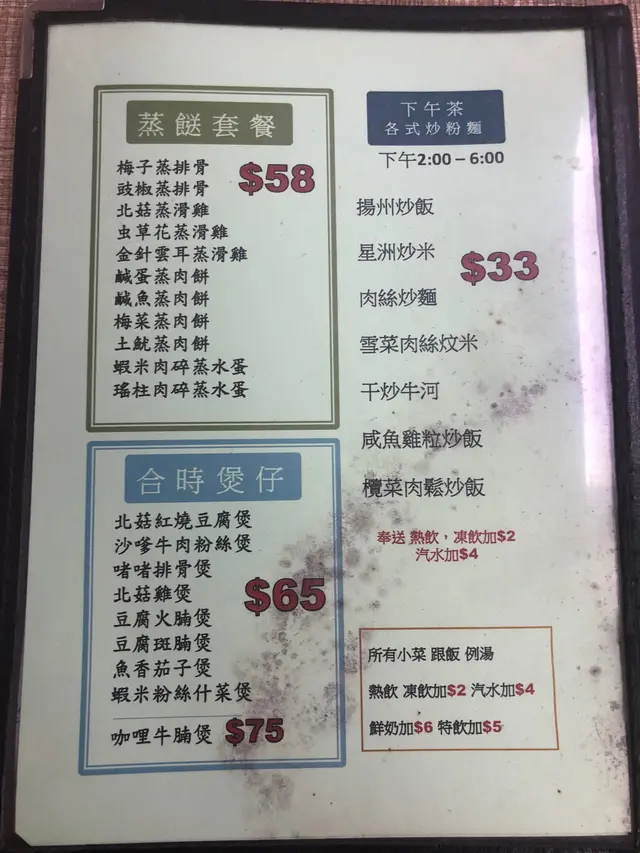 蒸餸套餐
梅子蒸排骨
豉椒蒸排骨
$58
北菇蒸滑雞
虫草花蒸滑雞
金針雲耳蒸滑雞
鹹蛋蒸肉餅
鹹魚蒸肉餅
梅菜蒸肉餅
土魷蒸肉餅
蝦米肉碎蒸水蛋
瑤柱肉碎蒸水蛋
合時煲仔
北菇紅燒豆腐煲
沙嗲牛肉粉絲煲
啫啫排骨煲
北菇雞煲
$65
豆腐火腩煲
豆腐斑腩煲
魚香茄子煲
蝦米粉絲什菜煲
咖哩牛腩煲 $75
下午茶
各式炒粉麵
下午2:00 – 6:00
揚州炒飯
星洲炒米
$33
肉絲炒麵
雪菜肉絲炆米
干炒牛河
咸魚雞粒炒飯
欖菜肉鬆炒飯
奉送 熱飲，凍飲加$2
汽水加$4
所有小菜 跟飯 例湯
熱飲 凍飲加$2 汽水加$4
鮮奶加$6 特飲加$5